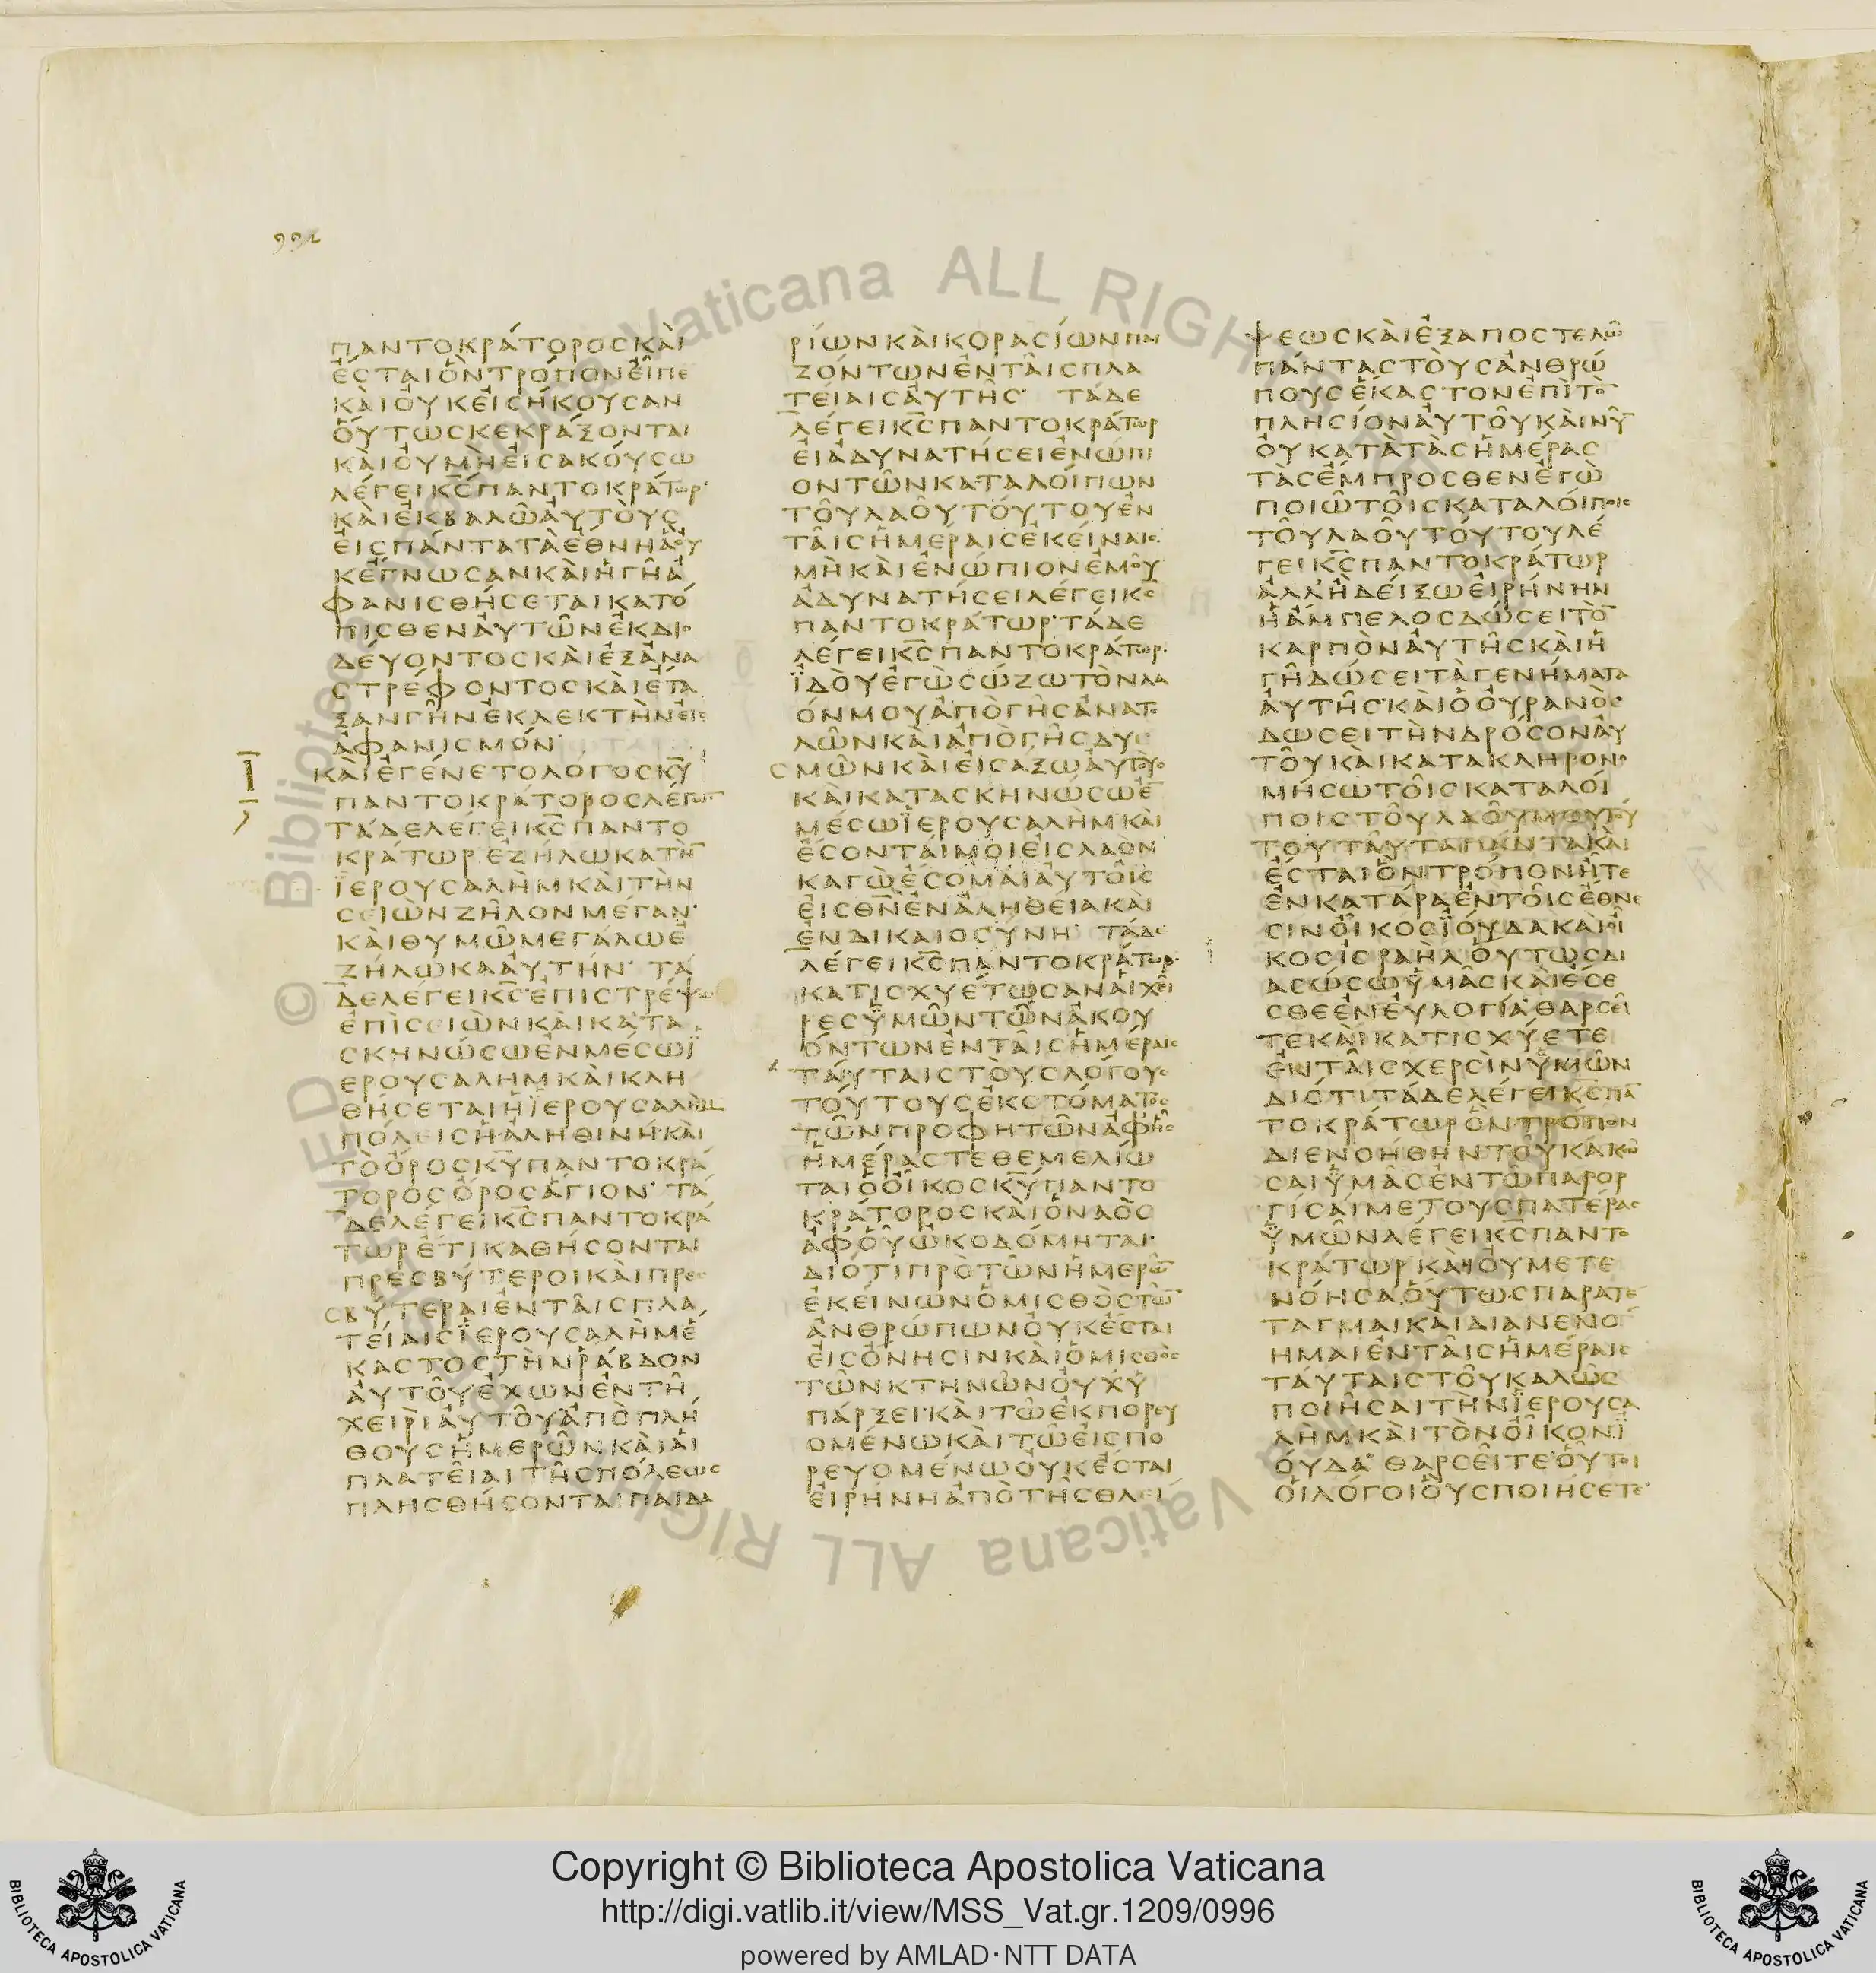 992
ΠΑΝΤΟΚΡΆΤΟΡΟΣ ΚΑῚ
ἜΣΤΑΙ ὋΝ ΤΡΌΠΟΝ ΕἾΠΕ
ΚΑῚ ΟΥ̓Κ ΕἸΣΉΚΟΥΣΑΝ
ΟὝΤΩΣ ΚΕΚΡΆΞΟΝΤΑΙ
ΚΑῚ ΟΥ̓ ΜῊ ΕἸΣΑΚΟΎΣΩ
ΛΈΓΕΙ Κ̅Σ̅ ΠΑΝΤΟΚΡΆΤΩΡ·
ΚΑῚ ἘΚΒΑΛΩ͂ ΑΥ̓ΤΟῪΣ
ΕἸΣ ΠΆΝΤΑ ΤᾺ ἜΘΝΗ Ἃ ΟΥ̓
Κ ἜΓΝΩΣΑΝ ΚΑῚ Ἡ ΓΗ͂ Ἀ
ΦΑΝΙΣΘΉΣΕΤΑΙ ΚΑΤΌ
ΠΙΣΘΕΝ ΑΥ̓ΤΩ͂Ν ἘΚ ΔΙΟ
ΔΕΎΟΝΤΟΣ ΚΑῚ ἘΞ ἈΝΑ
ΣΤΡΈΦΟΝΤΟΣ ΚΑῚ ἜΤΑ
ΞΑΝ ΓΗ͂Ν ἘΚΛΕΚΤῊΝ ΕἸΣ
ἈΦΑΝΙΣΜΌΝ·
Ι ΚΑῚ ἘΓΈΝΕΤΟ ΛΌΓΟΣ Κ̅Υ̅
ΠΑΝΤΟΚΡΆΤΟΡΟΣ ΛΈΓΩΝ
ΤΆΔΕ ΛΈΓΕΙ Κ̅Σ̅ ΠΑΝΤΟ
ΚΡΆΤΩΡ ἘΖΉΛΩΚΑ ΤῊΝ
ἸΕΡΟΥΣΑΛῊΜ ΚΑῚ ΤῊΝ
ΣΕΙῺΝ ΖΗ͂ΛΟΝ ΜΈΓΑΝ·
ΚΑῚ ΘΥΜΩ͂ ΜΕΓΆΛΩ Ἐ
ΖΉΛΩΚΑ ΑΥ̓ΤΉΝ· ΤΆ
ΔΕ ΛΈΓΕΙ Κ̅Σ̅ ἘΠΙΣΤΡΈΨΩ
ἘΠῚ ΣΕΙῺΝ ΚΑῚ ΚΑΤΑ
ΣΚΗΝΏΣΩ ἘΝ ΜΈΣΩ Ϊ
ΕΡΟΥΣΑΛΗΜ ΚΑῚ ΚΛΗ
ΘΉΣΕΤΑΙ Ἡ ἸΕΡΟΥΣΑΛῊΜ
ΠΌΛΕΙΣ Ἡ ἈΛΗΘΙΝΉ· ΚΑῚ
ΤῸ ὌΡΟΣ Κ̅Υ̅ ΠΑΝΤΟΚΡΆ
ΤΟΡΟΣ ὌΡΟΣ ἍΓΙΟΝ· ΤΆ
ΔΕ ΛΈΓΕΙ Κ̅Σ̅ ΠΑΝΤΟΚΡΆ
ΤΩΡ ἜΤΙ ΚΑΘΉΣΟΝΤΑΙ
ΠΡΕΣΒΎΤΕΡΟΙ ΚΑῚ ΠΡΕ
ΣΒΎΤΕΡΑΙ ἘΝ ΤΑΙ͂Σ ΠΛΑ
ΤΕΊΑΙΣ ἸΕΡΟΥΣΑΛῊΜ Ἕ
ΚΑΣΤΟΣ ΤῊΝ ΡΆΒΔΟΝ
ΑΥ̓ΤΟΥ͂ ἜΧΩΝ ἘΝ ΤΗ͂
ΧΕΙΡῚ ΑΥ̓ΤΟΥ͂ ἈΠῸ ΠΛΉ
ΘΟΥΣ ἩΜΕΡΩ͂Ν ΚΑῚ ΑἹ
ΠΛΑΤΕΙ͂ΑΙ ΤΗ͂Σ ΠΌΛΕΩΣ
ΠΛΗΣΘΉΣΟΝΤΑΙ ΠΑΙΔΑ
ΡΊΩΝ ΚΑῚ ΚΟΡΑΣΊΩΝ ΠΑΙ
ΖΌΝΤΩΝ ἘΝ ΤΑΙ͂Σ ΠΛΑ
ΤΕΊΑΙΣ ΑΥ̓ΤΗ͂Σ· ΤΆΔΕ
ΛΈΓΕΙ Κ̅Σ̅ ΠΑΝΤΟΚΡΆΤΩΡ
ΕἸ ἈΔΥΝΑΤΉΣΕΙ ἘΝΏΠΙ
ΟΝ ΤΩ͂Ν ΚΑΤΑΛΟΊΠΩΝ
ΤΟΥ͂ ΛΑΟΥ͂ ΤΟΎΤΟΥ ἘΝ
ΤΑΙ͂Σ ἩΜΈΡΑΙΣ ἘΚΕΊΝΑΙΣ
ΜῊ ΚΑῚ ἘΝΏΠΙΟΝ ἘΜΟΥ͂
ἈΔΥΝΑΤΉΣΕΙ ΛΈΓΕΙ Κ̅Σ̅
ΠΑΝΤΟΚΡΆΤΩΡ· ΤΆΔΕ
ΛΈΓΕΙ Κ̅Σ̅ ΠΑΝΤΟΚΡΆΤΩΡ·
ἸΔΟῪ ἘΓῺ ΣΏΖΩ ΤῸΝ ΛΑ
ΌΝ ΜΟΥ ἈΠῸ ΓΗ͂Σ ἈΝΑΤΟ
ΛΩ͂Ν ΚΑῚ ἈΠῸ ΓΗ͂Σ ΔΥ
ΣΜΩ͂Ν ΚΑῚ ΕἸΣΑΞΩ ΑΥ̓ΤΟῪΣ
ΚΑῚ ΚΑΤΑΣΚΗΝΏΣΩ ἘΝ
ΜΈΣΩ ἸΕΡΟΥΣΑΛῊΜ ΚΑῚ
ἜΣΟΝΤΑΙ ΜΟΙ ΕἸΣ ΛΑΟΝ
ΚΑΓῺ ἜΣΟΜΑΙ ΑΥ̓ΤΟΙ͂Σ
ΕἸΣ Θ̅Ν̅ ἘΝ ἈΛΗΘΕΊΑ ΚΑῚ
ἘΝ ΔΙΚΑΙΟΣΎΝΗ· ΤΆΔΕ
ΛΈΓΕΙ Κ̅Σ̅ ΠΑΝΤΟΚΡΆΤΩΡ·
ΚΑΤΙΣΧΥΈΤΩΣΑΝ ΑἹ ΧΕΙ͂
ΡΕΣ ὙΜΩ͂Ν ΤΩ͂Ν ἈΚΟΥ
ΌΝΤΩΝ ἘΝ ΤΑΙ͂Σ ἩΜΈΡΑΙΣ
ΤΑΎΤΑΙΣ ΤΟῪΣ ΛΌΓΟΥΣ
ΤΟΎΤΟΥΣ ἘΚ ΣΤΌΜΑΤΟΣ
ΤΩ͂Ν ΠΡΟΦΗΤΩ͂Ν ἈΦ Η͂Σ
ἩΜΈΡΑΣ ΤΕΘΕΜΕΛΊΩ
ΤΑΙ Ὁ ΟἾΚΟΣ Κ̅Υ̅ ΠΑΝΤΟ
ΚΡΆΤΟΡΟΣ ΚΑῚ Ὁ ΝΑῸΣ
ἈΦ ΟΥ͂ ᾨΚΟΔΌΜΗΤΑΙ·
ΔΙΌΤΙ ΠΡῸ ΤΩ͂Ν ἩΜΕΡΩ͂Ν
ἘΚΕΊΝΩΝ Ὁ ΜΙΣΘῸΣ ΤΩ͂Ν
ἈΝΘΡΏΠΩΝ ΟΥ̓Κ ἜΣΤΑΙ
ΕἸΣ ὌΝΗΣΙΝ ΚΑῚ Ὁ ΜΙΣΘῸΣ
ΤΩ͂Ν ΚΤΗΝΩ͂Ν ΟΥ̓Χ Ὑ
ΠΆΡΞΕΙ· ΚΑῚ ΤΩ͂ ἘΚΠΟΡΕΥ
ΟΜΈΝΩ ΚΑῚ ΤΩ͂ ΕἸΣΠΟ
ΡΕΥΟΜΈΝΩ ΟΥ̓Κ ἜΣΤΑΙ
ΕἸΡΉΝΗ ἈΠῸ ΤΗ͂Σ ΘΛΕΊ
ΨΕΩΣ ΚΑῚ ἘΞΑΠΟΣΤΕΛΩ͂
ΠΆΝΤΑΣ ΤΟῪΣ ἈΝΘΡΏ
ΠΟΥΣ ἝΚΑΣΤΟΝ ἘΠῚ ΤῸΝ
ΠΛΗΣΊΟΝ ΑΥ̓ΤΟΥ͂ ΚΑῚ ΝΥ͂Ν
ΟΥ̓ ΚΑΤᾺ ΤᾺΣ ἩΜΈΡΑΣ
ΤᾺΣ ἜΜΠΡΟΣΘΕΝ ἘΓῺ
ΠΟΙΩ͂ ΤΟΙ͂Σ ΚΑΤΑΛΟΊΠΟΙΣ
ΤΟΥ͂ ΛΑΟΥ͂ ΤΟΎΤΟΥ ΛΈ
ΓΕΙ Κ̅Σ̅ ΠΑΝΤΟΚΡΆΤΩΡ
ἈΛΛ Ἢ ΔΕΊΞΩ ΕἸΡΉΝΗΝ
Ἡ ἌΜΠΕΛΟΣ ΔΏΣΕΙ ΤῸΝ
ΚΑΡΠῸΝ ΑΥ̓ΤΗ͂Σ ΚΑῚ Ἡ
ΓΗ͂ ΔΏΣΕΙ ΤᾺ ΓΕΝΉΜΑΤΑ
ΑΥ̓ΤΗ͂Σ· ΚΑῚ Ὁ ΟΥ̓ΡΑΝῸΣ
ΔΏΣΕΙ ΤῊΝ ΔΡΌΣΟΝ ΑΥ̓
ΤΟΥ͂ ΚΑῚ ΚΑΤΑΚΛΗΡΟΝΟ
ΜΉΣΩ ΤΟΙ͂Σ ΚΑΤΑΛΟΊ
ΠΟΙΣ ΤΟΥ͂ ΛΑΟΥ͂ ΜΟΥ ΤΟΎ
ΤΟΥ ΤΑΥ͂ΤΑ ΠΆΝΤΑ ΚΑῚ
ἜΣΤΑΙ ὋΝ ΤΡΌΠΟΝ ΗΤΕ
ἘΝ ΚΑΤΆΡΑ ἘΝ ΤΟΙ͂Σ ἜΘΝΕ
ΣΙΝ Ὁ ΟἾΚΟΣ ἸΟΎΔΑ ΚΑῚ ΟἾ
ΚΟΣ ἸΣΡΑῊΛ ΟὝΤΩΣ ΔΙ
ΑΣΏΣΩ ὙΜΑ͂Σ ΚΑῚ ἜΣΕ
ΣΘΕ ἘΝ ΕΥ̓ΛΟΓΊΑ· ΘΑΡΣΕΙ͂
ΤΕ ΚΑῚ ΚΑΤΙΣΧΎΕΤΕ
ἘΝ ΤΑΙ͂Σ ΧΕΡΣῚΝ ὙΜΩ͂Ν
ΔΙΌΤΙ ΤΆΔΕ ΛΈΓΕΙ Κ̅Σ̅ ΠΑΝ
ΤΟΚΡΆΤΩΡ ὋΝ ΤΡΌΠΟΝ
ΔΙΕΝΟΉΘΗΝ ΤΟΥ͂ ΚΑΚΩ͂
ΣΑΙ ὙΜΑ͂Σ ἘΝ ΤΩ͂ ΠΑΡΟΡ
ΓΊΣΑΙ ΜΕ ΤΟΥΣ ΠΑΤΈΡΑΣ
ὙΜΩ͂Ν ΛΈΓΕΙ Κ̅Σ̅ ΠΑΝΤΟ
ΚΡΆΤΩΡ ΚΑῚ ΟΥ̓ ΜΕΤΕ
ΝΌΗΣΑ ΟὝΤΩΣ ΠΑΡΑΤΕ
ΤΑΓΜΑΙ ΚΑῚ ΔΙΑΝΕΝΟ
ΗΜΑΙ ἘΝ ΤΑΙ͂Σ ἩΜΈΡΑΙΣ
ΤΑΎΤΑΙΣ ΤΟΥ͂ ΚΑΛΩ͂Σ
ΠΟΙΗ͂ΣΑΙ ΤῊΝ ἸΕΡΟΥΣΑ
ΛῊΜ ΚΑῚ ΤῸΝ ΟἾΚΟΝ Ϊ
ΟΎΔΑ· ΘΑΡΣΕΙ͂ΤΕ· ΟΥ̓͂ΤΟΙ
ΟἹ ΛΌΓΟΙ ΟὝΣ ΠΟΙΉΣΕΤΕ·
Copyright © Biblioteca Apostolica Vaticana
http://digi.vatlib.it/view/MSS_Vat.gr.1209/0996
powered by AMLAD·NTT DATA
BIBLIOTECA APOSTOLICA VATICANA
BIBLIOTECA APOSTOLICA VATICANA